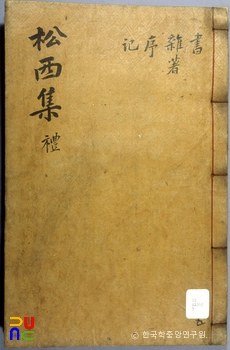 松西集 禮
書 雜著 序 記
© 한국학중앙연구원.